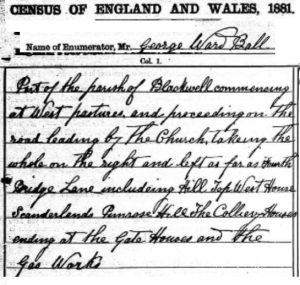 CENSUS OF ENGLAND AND WALES, 1881.
Name of Enumerator, Mr. George Ward Ball
Col. 1.
Part of the parish of Blackwell commencing
at West pastures, and proceeding on the
road leading by the Church, takeing the
whole on the right and left as far as
Bridge Lane includeing Hill Top West House
Scanderlands Primrose Hill The Colliery Houses
ending at the Gate Houses and the
Gas Works